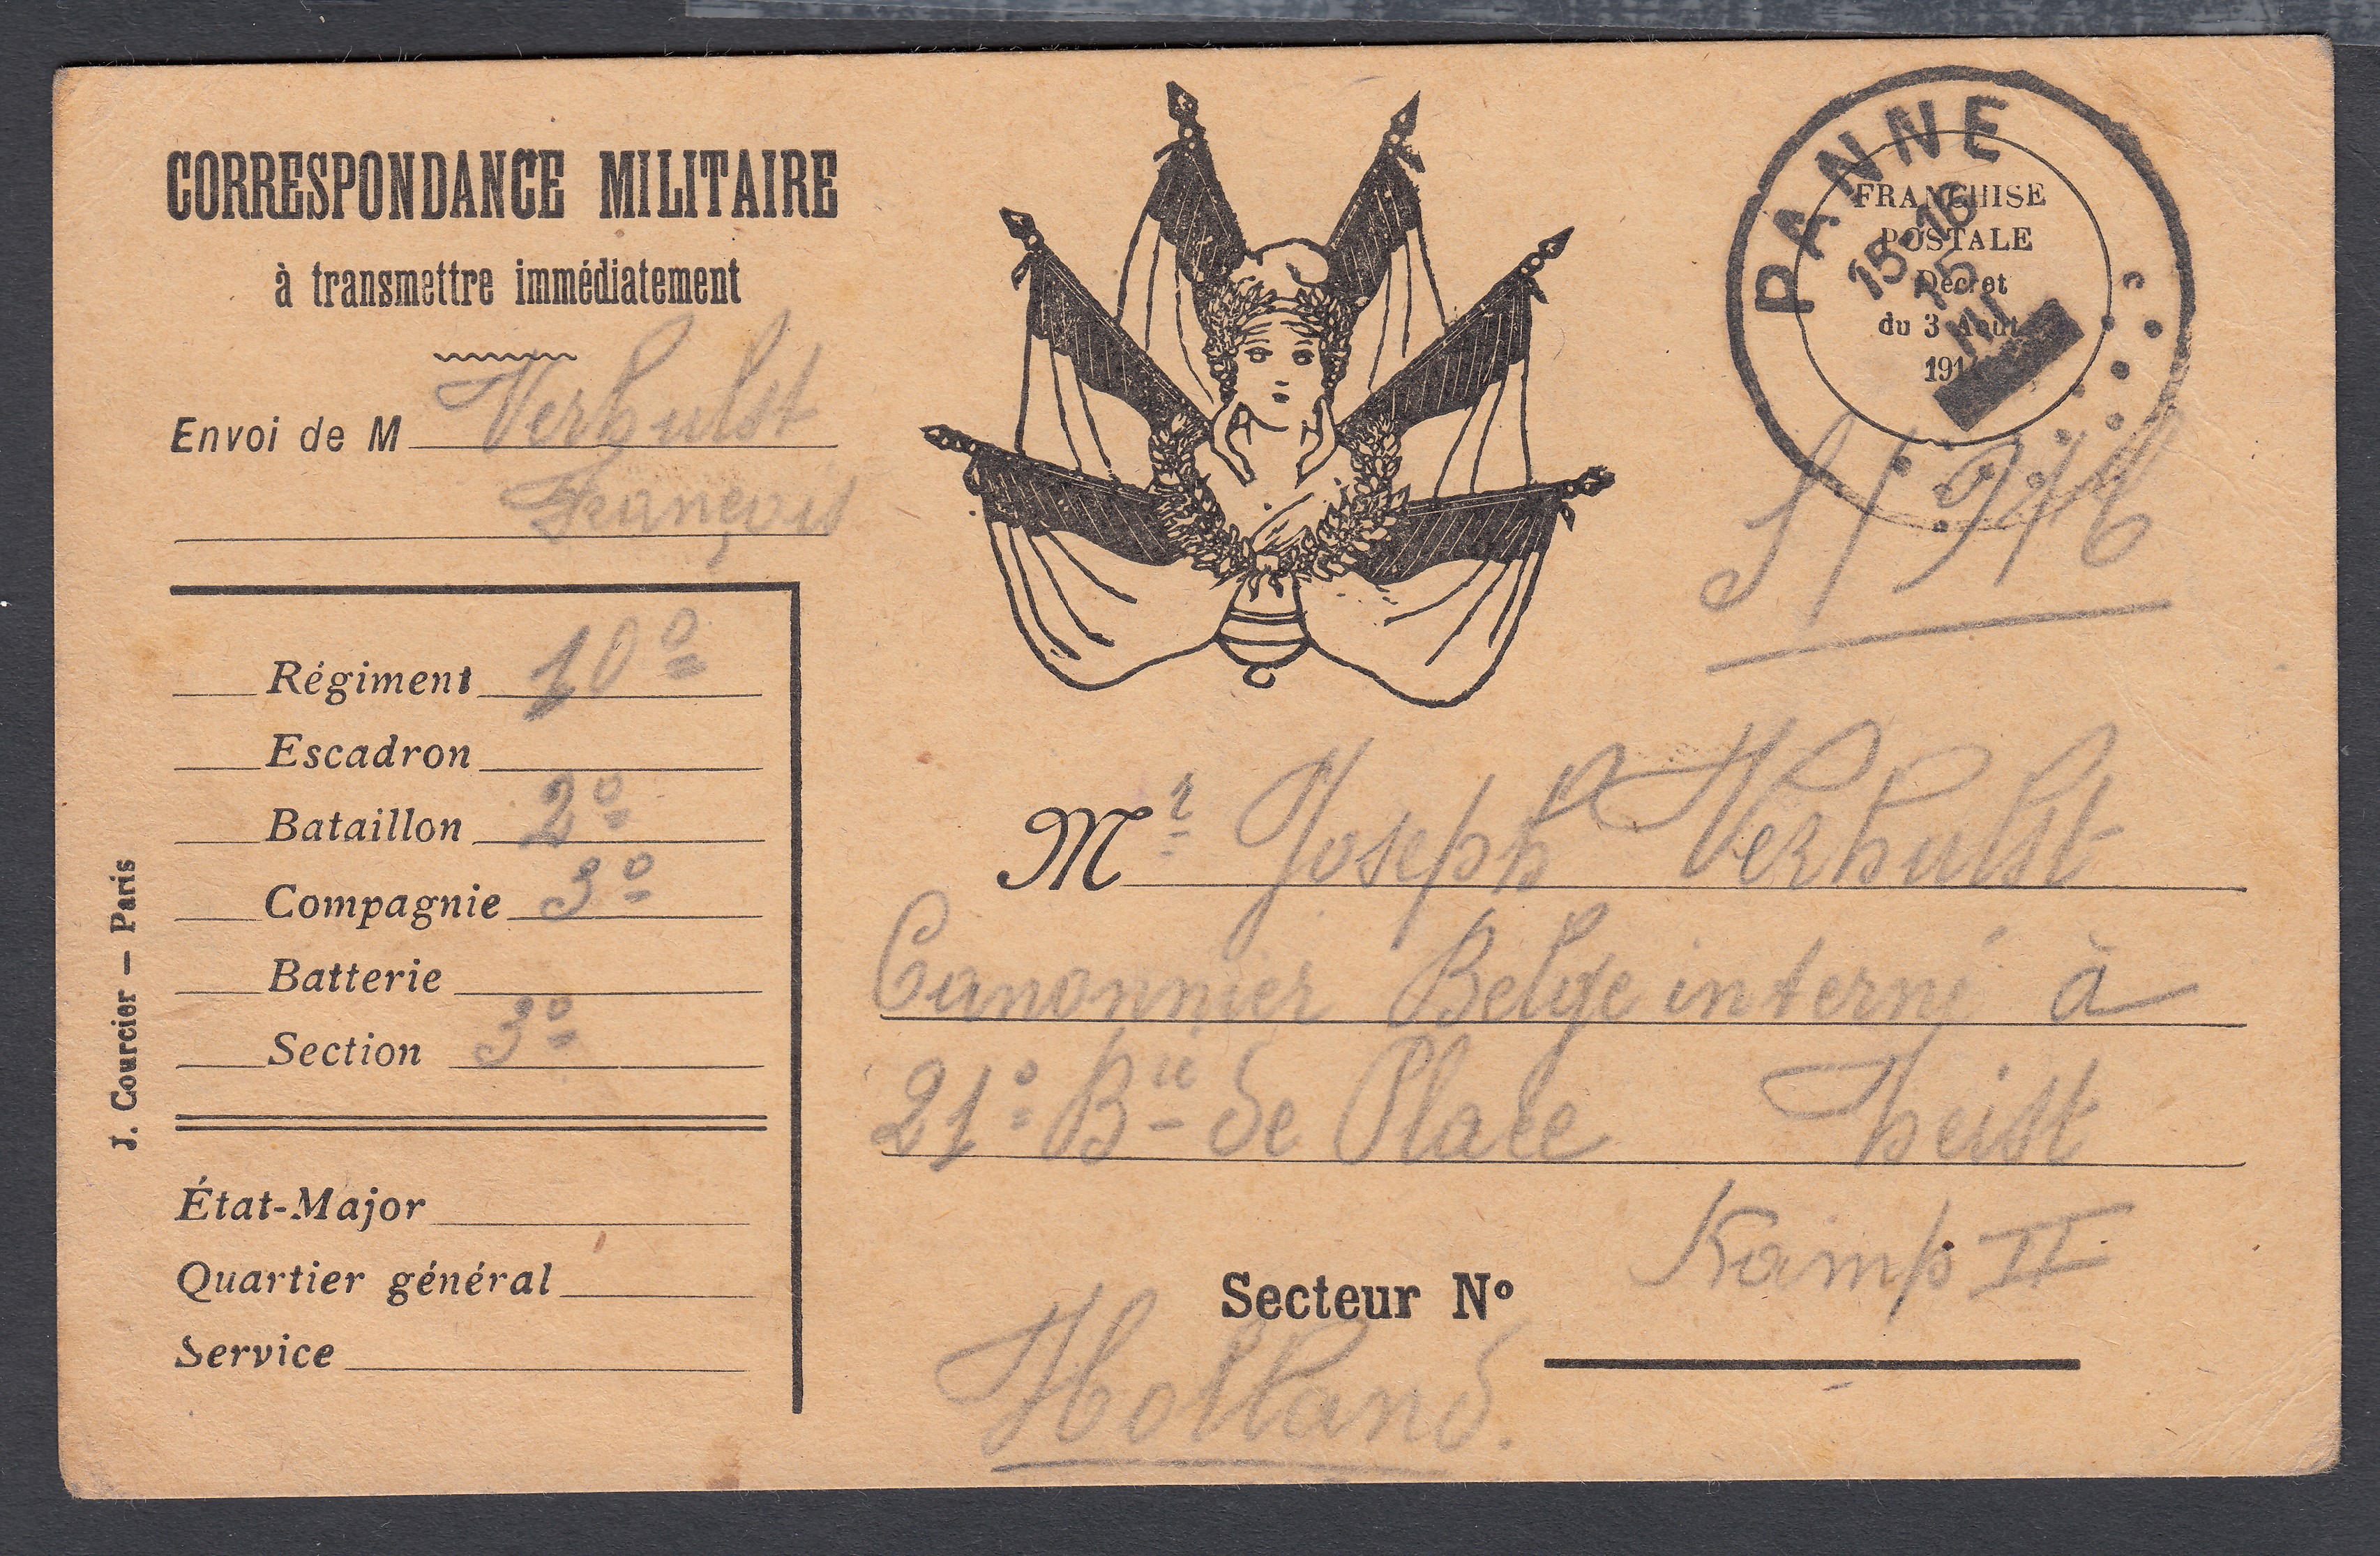 CORRESPONDANCE MILITAIRE
à transmettre immédiatement
Envoi de M Verhulst
François
Régiment 10º
Escadron
Bataillon 2º
Compagnie 3º
Batterie
Section 3º
État-Major
Quartier général
Service
J. Courcier — Paris
PANNE
15-16
15
FRANCHISE
POSTALE
Décret
du 3 Août
1914
Mr Joseph Verhulst
Canonnier Belge interné à
21º Bie de Place Zeist
Kamp II
Secteur Nº
Holland.